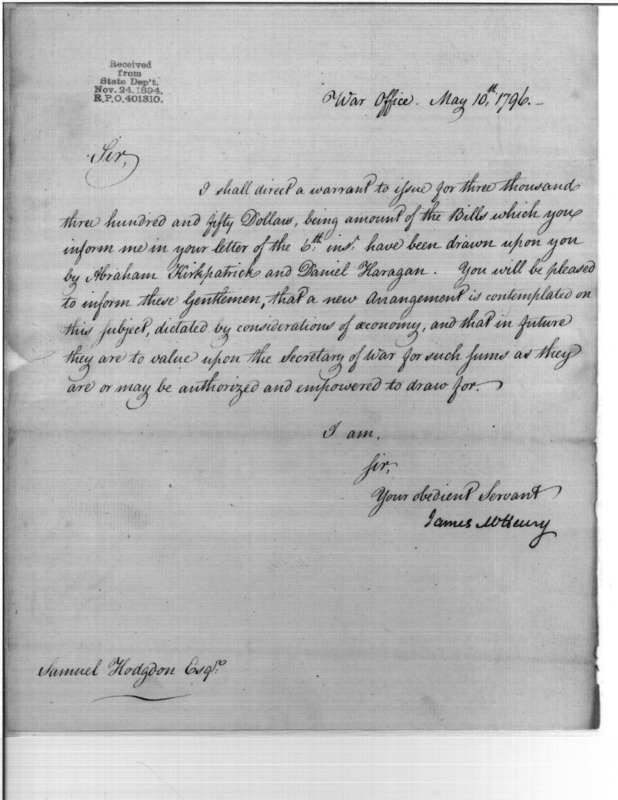 Received
from
State Dep't.
Nov. 24. 1894.
R.P.O. 401310.
War Office. May 10th, 1796.
Sir,
I shall direct a warrant to issue for three thousand
three hundred and fifty Dollars, being amount of the Bills which you
inform me in your letter of the 6th. inst. have been drawn upon you
by Abraham Kirkpatrick and Daniel Haragan. You will be pleased
to inform these Gentlemen, that a new Arrangement is contemplated on
this subject, dictated by considerations of œconomy, and that in future
they are to value upon the Secretary of War for such sums as they
are or may be authorized and empowered to draw for.
I am,
Sir,
Your obedient Servant
James McHenry
Samuel Hodgdon Esqr.